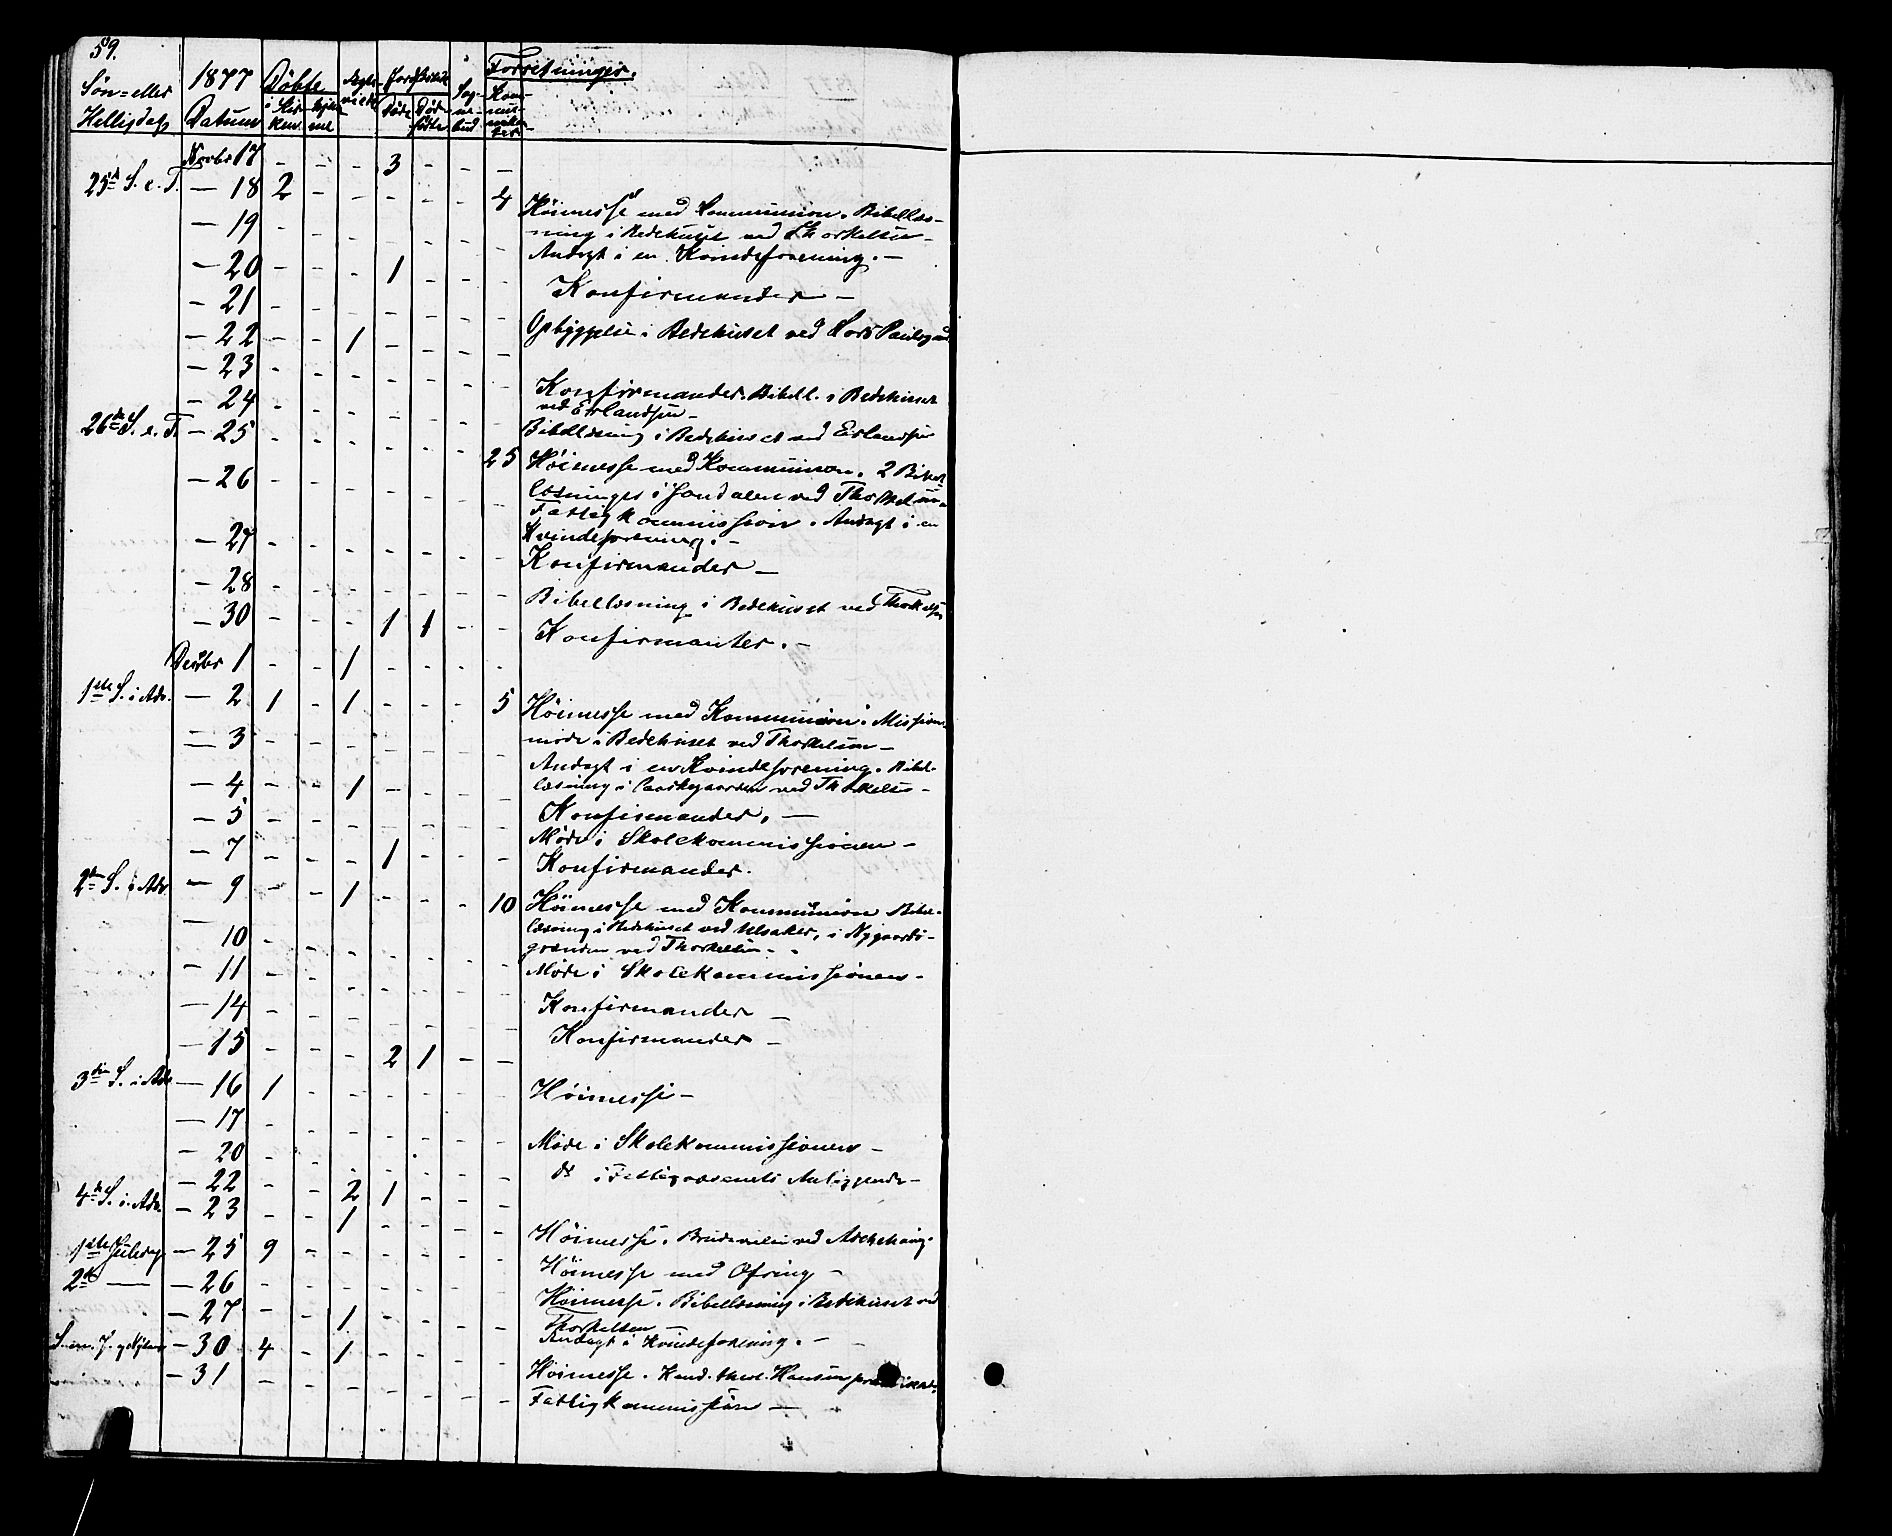 59.
Søn- eller Helligdage | 1877 Datum | Døbte i Kirken | hjemme | Ægteviede | Jordfæstede Døde | Dødfødte | Sognebud | Forretninger. Kommunikanter
Novbr 17 - - - 3 - - -
25de S. e. T. — 18 2 - - - - - 4 Høimesse med Kommunion. Bibellæs-
— 19 - - - - - - - ning i Bedehuset ved Thorkelsen -
Andagt i en Kvindeforening. —
— 20 - - - 1 - - -
— 21 - - - - - - - Konfirmander —
— 22 - - 1 - - - - Opbyggelse i Bedehuset ved Lars
— 23 - - - - - - -
— 24 - - - - - - - Konfirmander. Bibell. i Bedehuset
ved Erlandsen -
26de S. e. T. — 25 - - - - - - 25 Bibellæsning i Bedehuset ved Erlandsen
Høimesse med Kommunion. 2 Bibel-
— 26 - - - - - - - læsninger i ved Thorkelsen.
Fattigkommission. Andagt i en
Kvindeforening. -
— 27 - - - - - - - Konfirmander —
— 28 - - - - - - - Bibellæsning i Bedehuset ved Thorkelsen
— 30 - - - 1 1 - - Konfirmanter. -
Decbr 1 - - 1 - - - -
1ste S. i Adv. — 2 1 - 1 - - - 5 Høimesse med Kommunion. Missions-
møde i Bedehuset ved Thorkelsen —
— 3 - - - - - - - Andagt i en Kvindeforening. Bibel-
læsning i ved Thorkelsen -
— 4 - - 1 - - - -
— 5 - - - - - - - Konfirmander. —
Møde i Skolekommissionen -
— 7 - - - 1 - - - Konfirmander.
2den S. i Adv. — 9 - - 1 - - - 10 Høimesse med Kommunion Bibel-
læsning i Bedehuset ved Ulsaker, i Nygaards-
grænden ved Thorkelsen -
— 10 - - - - - - - Møde i Skolekommissionen -
— 11 - - - - - - -
— 14 - - - - - - - Konfirmander —
— 15 - - - 2 1 - - Konfirmander -
3die S. i Adv. — 16 1 - - - - - - Høimesse -
— 17 - - - - - - - Møde i Skolekommissionen -
— 20 - - - - - - - do i Fattigvæsenets Anliggende -
— 22 - - 2 1 - - -
4de S. i Adv. — 23 - - 1 - - - - Høimesse. Brudevielse ved
1ste Juledag — 25 9 - - - - - - Høimesse med Ofring -
2den — — 26 - - - - - - - Høimesse. Bibellæsning i Bedehuset ved
Thorkelsen —
— 27 - - 1 - - - - Andagt i Kvindeforening. —
S. m. J. og Nytaar — 30 4 - 1 - - - - Høimesse. Kand. theol. Hansen
— 31 - - - - - - - Fattigkommission —